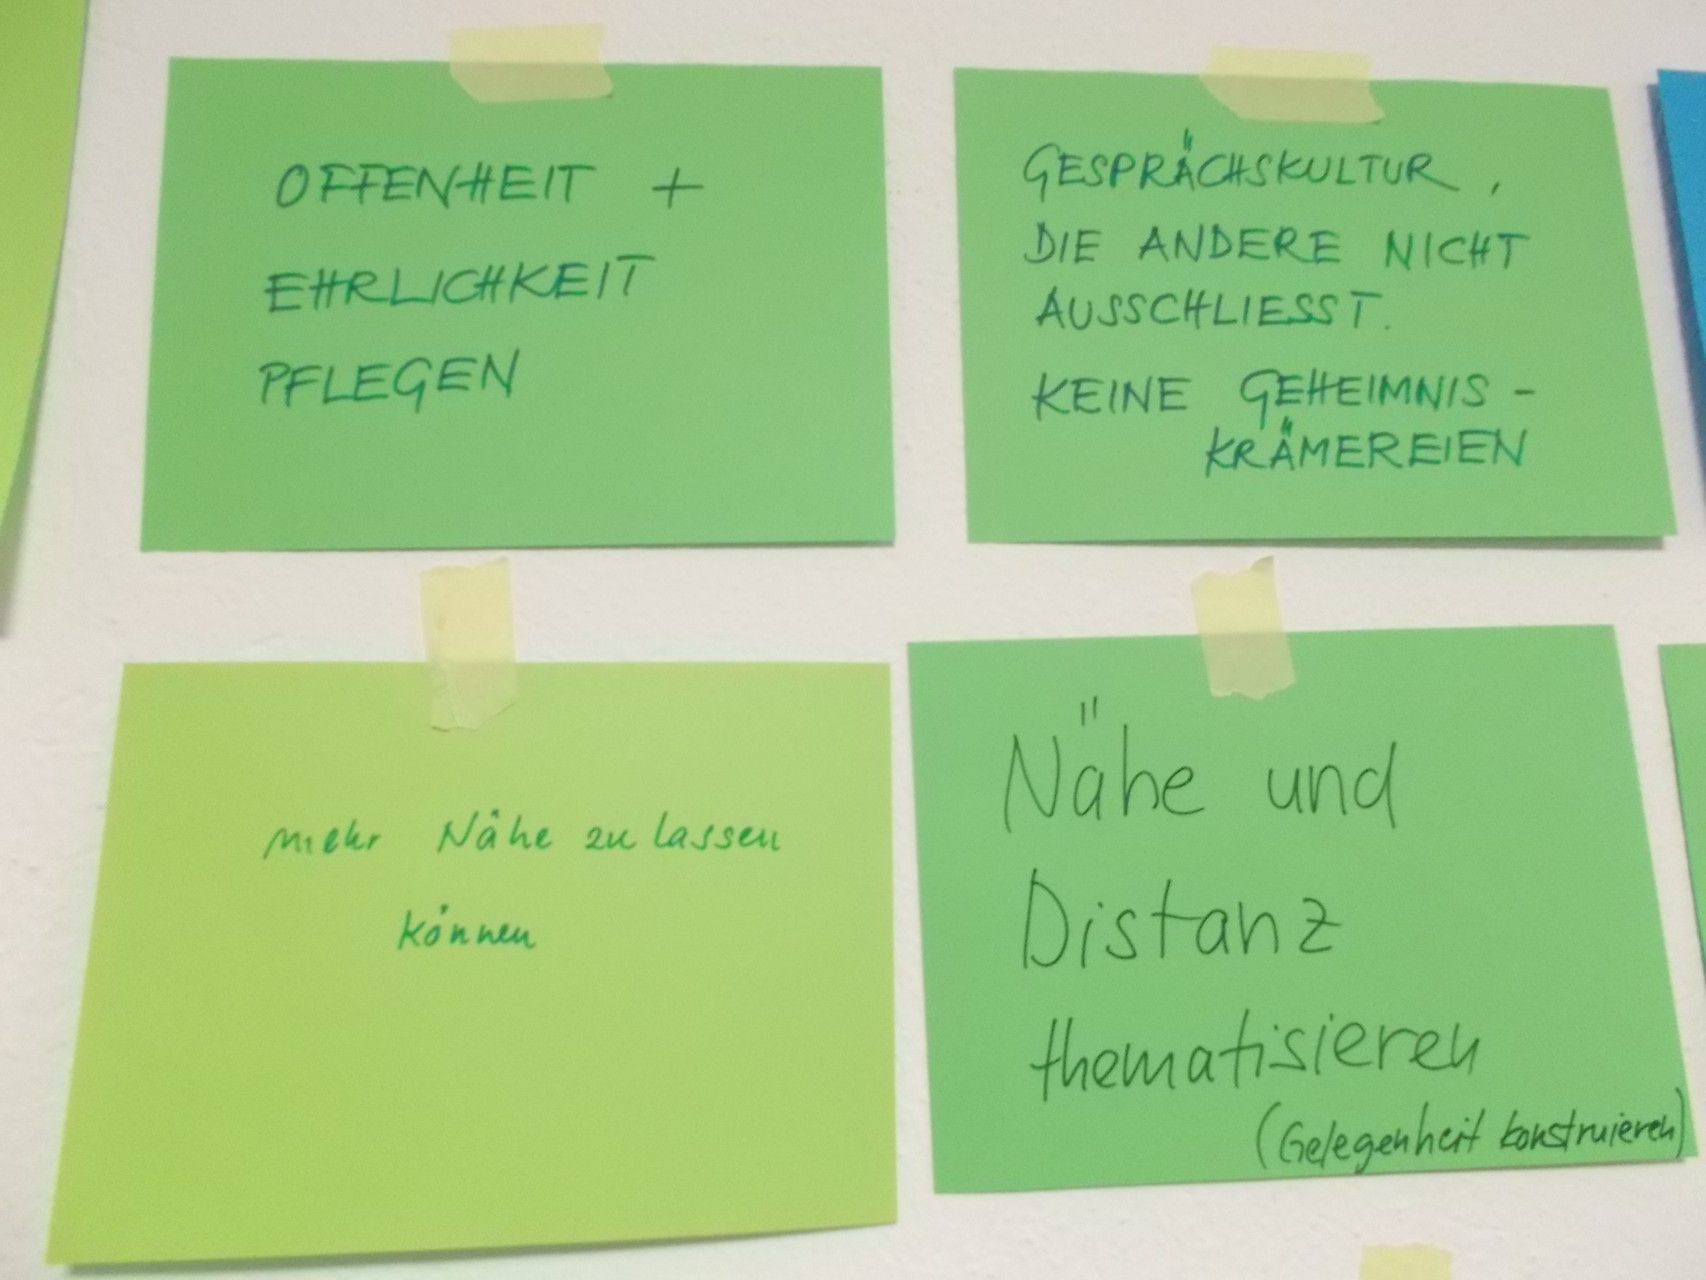 OFFENHEIT +
EHRLICHKEIT
PFLEGEN
GESPRÄCHSKULTUR,
DIE ANDERE NICHT
AUSSCHLIESST.
KEINE GEHEIMNIS-
KRÄMEREIEN
mehr Nähe zu lassen
können
Nähe und
Distanz
thematisieren
(Gelegenheit konstruieren)